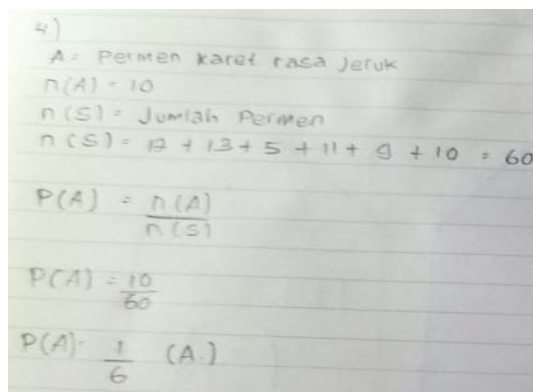 4)
A = Permen karet rasa jeruk
n(A) = 10
n(S) = Jumlah Permen
n(S) = 12 + 13 + 5 + 11 + 9 + 10 = 60
P(A) = n(A)
n(S)
P(A) = 10
60
P(A) = 1 (A.)
6